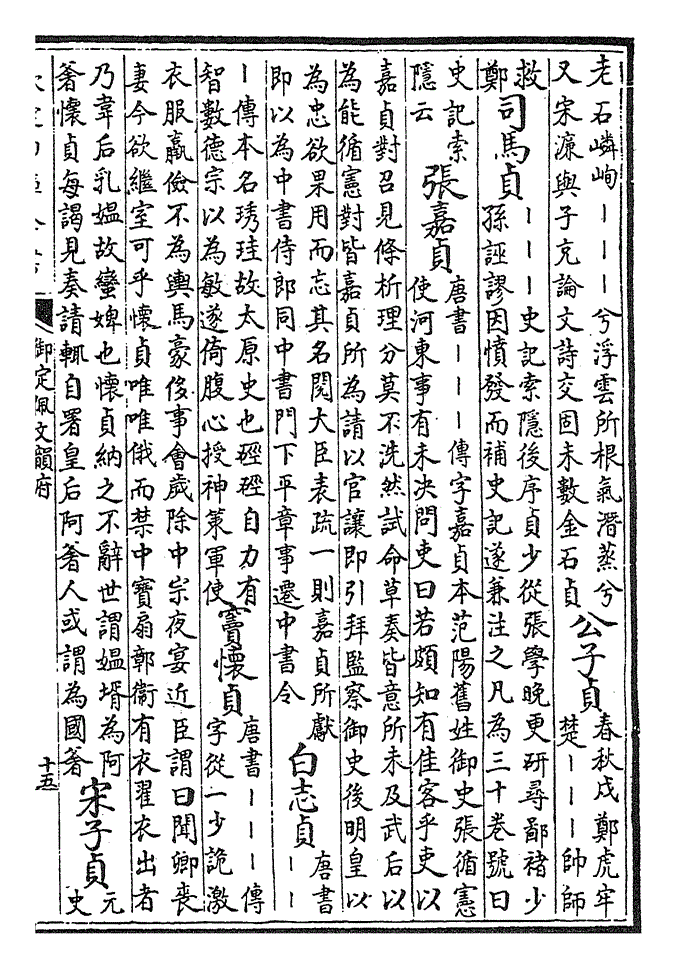 老石嶙峋丨丨丨兮浮雲所根氣潛蒸兮
又宋濂與子充論文詩交固未數金石貞
公子貞
春秋戌鄭虎牢
楚丨丨丨帥師
救
鄭
司馬貞
丨丨丨史記索隱後序貞少從張學晚更研尋鄙褚少
孫誣謬因憤發而補史記遂兼注之凡為三十卷號曰
史記索
隱云
張嘉貞
唐書丨丨丨傳字嘉貞本范陽舊姓御史張循憲
使河東事有未決問吏曰若頗知有佳客乎吏以
嘉貞對召見條析理分莫不洗然試命草奏皆意所未及武后以
為能循憲對皆嘉貞所為請以官讓即引拜監察御史後明皇以
為忠欲果用而忘其名閱大臣表疏一則嘉貞所獻
即以為中書侍郎同中書門下平章事遷中書令
白志貞
唐書
丨丨
丨傳本名琇珪故太原史也硜硜自力有
智數德宗以為敏遂倚腹心授神策軍使
竇懷貞
唐書丨丨丨傳
字從一少詭激
衣服羸儉不為輿馬豪侈事會歲除中宗夜宴近臣謂曰聞卿喪
妻今欲繼室可乎懷貞唯唯俄而禁中寶扇鄣衛有衣翟衣出者
乃韋后乳媼故蠻婢也懷貞納之不辭世謂媼壻為阿
奢懷貞每謁見奏請輒自署皇后阿奢人或謂為國奢
宋子貞
元
史
御定佩文韻府
十五